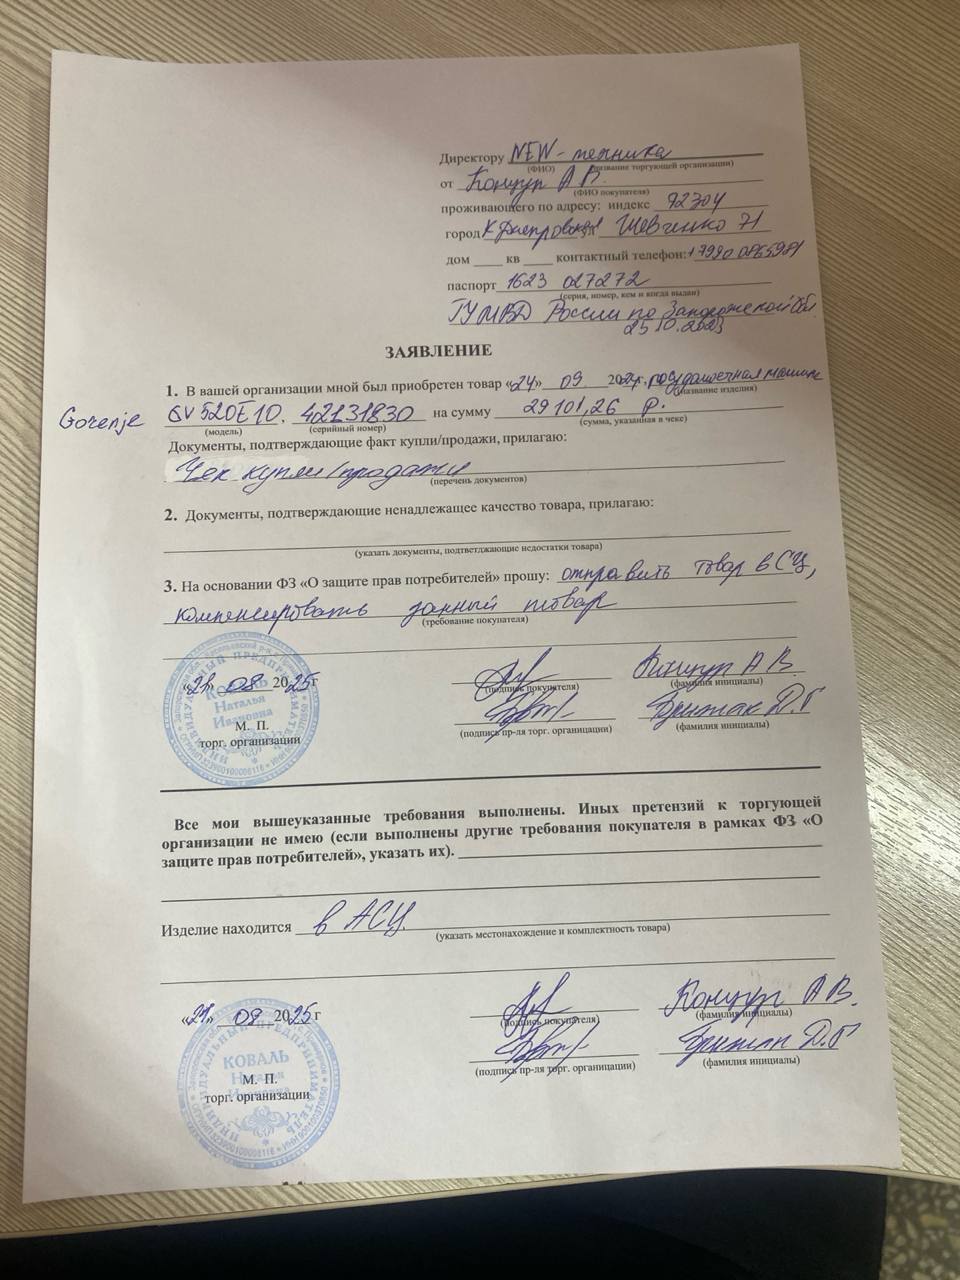 Директору NEW-техника
(ФИО) (название торгующей организации)
от Концур А В.
(ФИО покупателя)
проживающего по адресу: индекс 92304
город К Днепровская Шевченко 71
дом ____ кв ____ контактный телефон:
паспорт 1623 027272
(серия, номер, кем и когда выдан)
ГУ МВД России по Запорожской обл.
25 10.2023
ЗАЯВЛЕНИЕ
1. В вашей организации мной был приобретен товар «24» 09 2024г, посудомоечная машина
(название изделия)
Gorenje GV 520E10, 42131830 на сумму 29101,26 р.
(модель) (серийный номер) (сумма, указанная в чеке)
Документы, подтверждающие факт купли/продажи, прилагаю:
Чек купли/продажи
(перечень документов)
2. Документы, подтверждающие ненадлежащее качество товара, прилагаю:
(указать документы, подтветджающие недостатки товара)
3. На основании ФЗ «О защите прав потребителей» прошу: отправить товар в СЦ,
компенсировать данный товар
(требование покупателя)
«21» 08 2025г Концур А В.
(подпись покупателя) (фамилия инициалы)
КОВАЛЬ
Наталья
Ивановна
ИНДИВИДУАЛЬНЫЙ ПРЕДПРИНИМАТЕЛЬ
М. П.
торг. организации
(подпись пр-ля торг. органицации) (фамилия инициалы)
Все мои вышеуказанные требования выполнены. Иных претензий к торгующей
организации не имею (если выполнены другие требования покупателя в рамках ФЗ «О
защите прав потребителей», указать их).
Изделие находится в АСЦ.
(указать местонахождение и комплектность товара)
«21» 09 2025г Концур А В.
(подпись покупателя) (фамилия инициалы)
КОВАЛЬ
Наталья
Ивановна
ИНДИВИДУАЛЬНЫЙ ПРЕДПРИНИМАТЕЛЬ
М. П.
торг. организации
(подпись пр-ля торг. органицации) (фамилия инициалы)